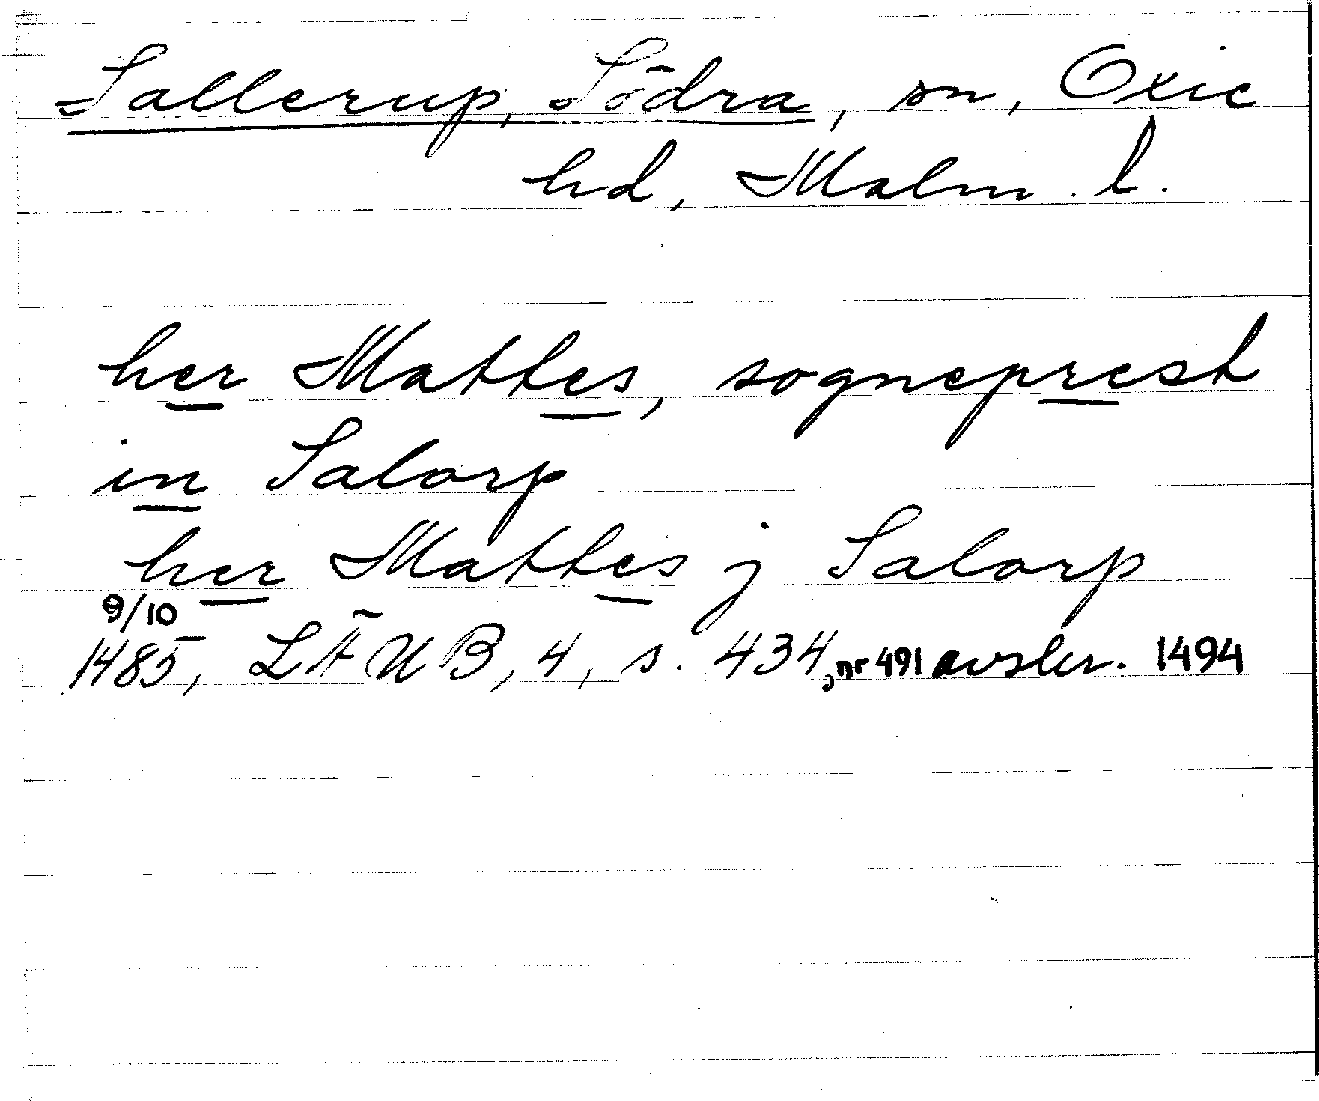 Sallerup, Södra, sn, Oxie
hd, Malm. l.
her Mattes, sogneprest
in Salorp
her Mattes j Salorp
9/10
1485, LÄUB, 4, s. 434, nr 491 avskr. 1494